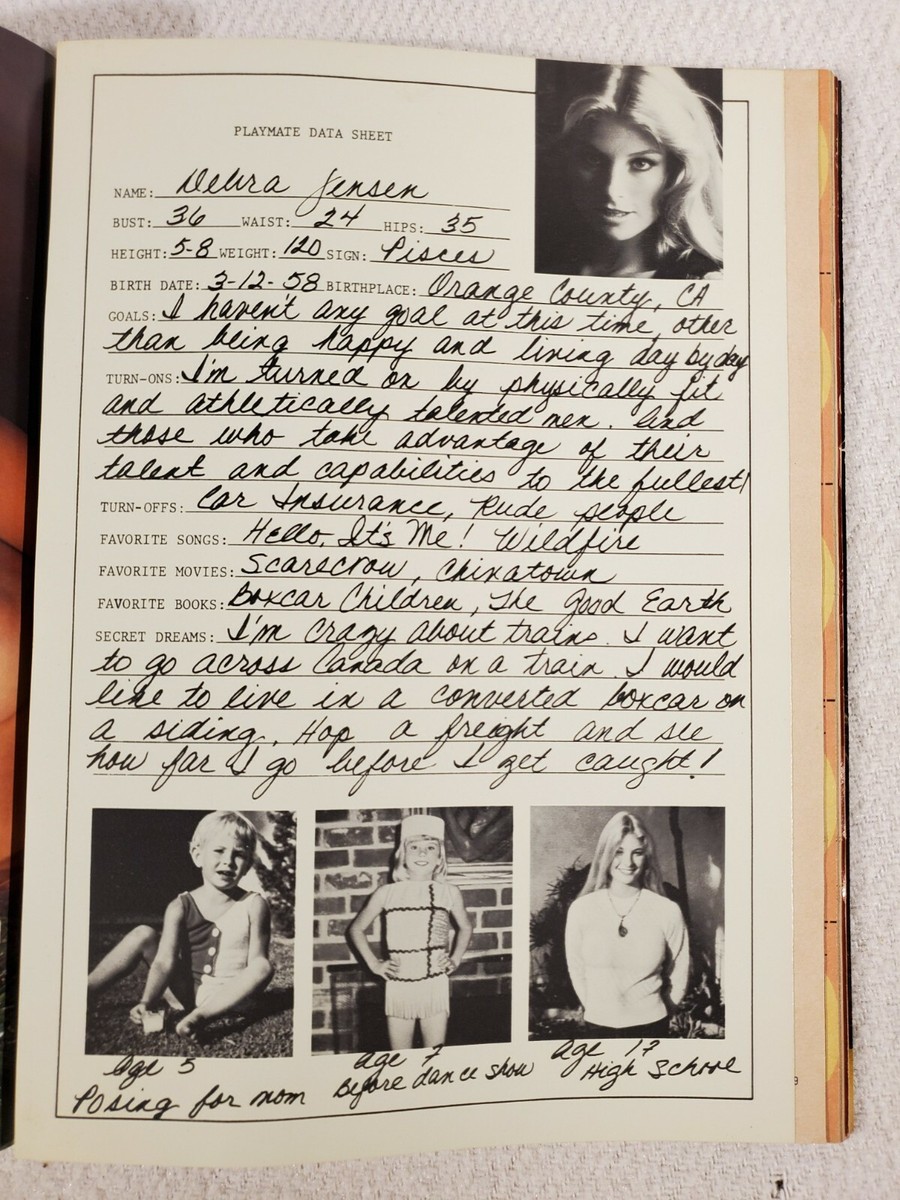 PLAYMATE DATA SHEET
NAME: Debra Jensen
BUST: 36 WAIST: 24 HIPS: 35
HEIGHT: 5-8 WEIGHT: 120 SIGN: Pisces
BIRTH DATE: 3-12-58 BIRTHPLACE: Orange County, CA
GOALS: I haven't any goal at this time, other
than being happy and living day by day
TURN-ONS: I'm turned on by physically fit
and athletically talented men. And
those who take advantage of their
talent and capabilities to the fullest!
TURN-OFFS: Car Insurance, Rude people
FAVORITE SONGS: Hello, It's Me! Wildfire
FAVORITE MOVIES: Scarecrow, Chinatown
FAVORITE BOOKS: Boxcar Children, The Good Earth
SECRET DREAMS: I'm crazy about trains. I want
to go across Canada on a train. I would
like to live in a converted boxcar on
a siding. Hop a freight and see
how far I go before I get caught!
age 5
Posing for mom
age 7
Before dance show
age 17
High School
9